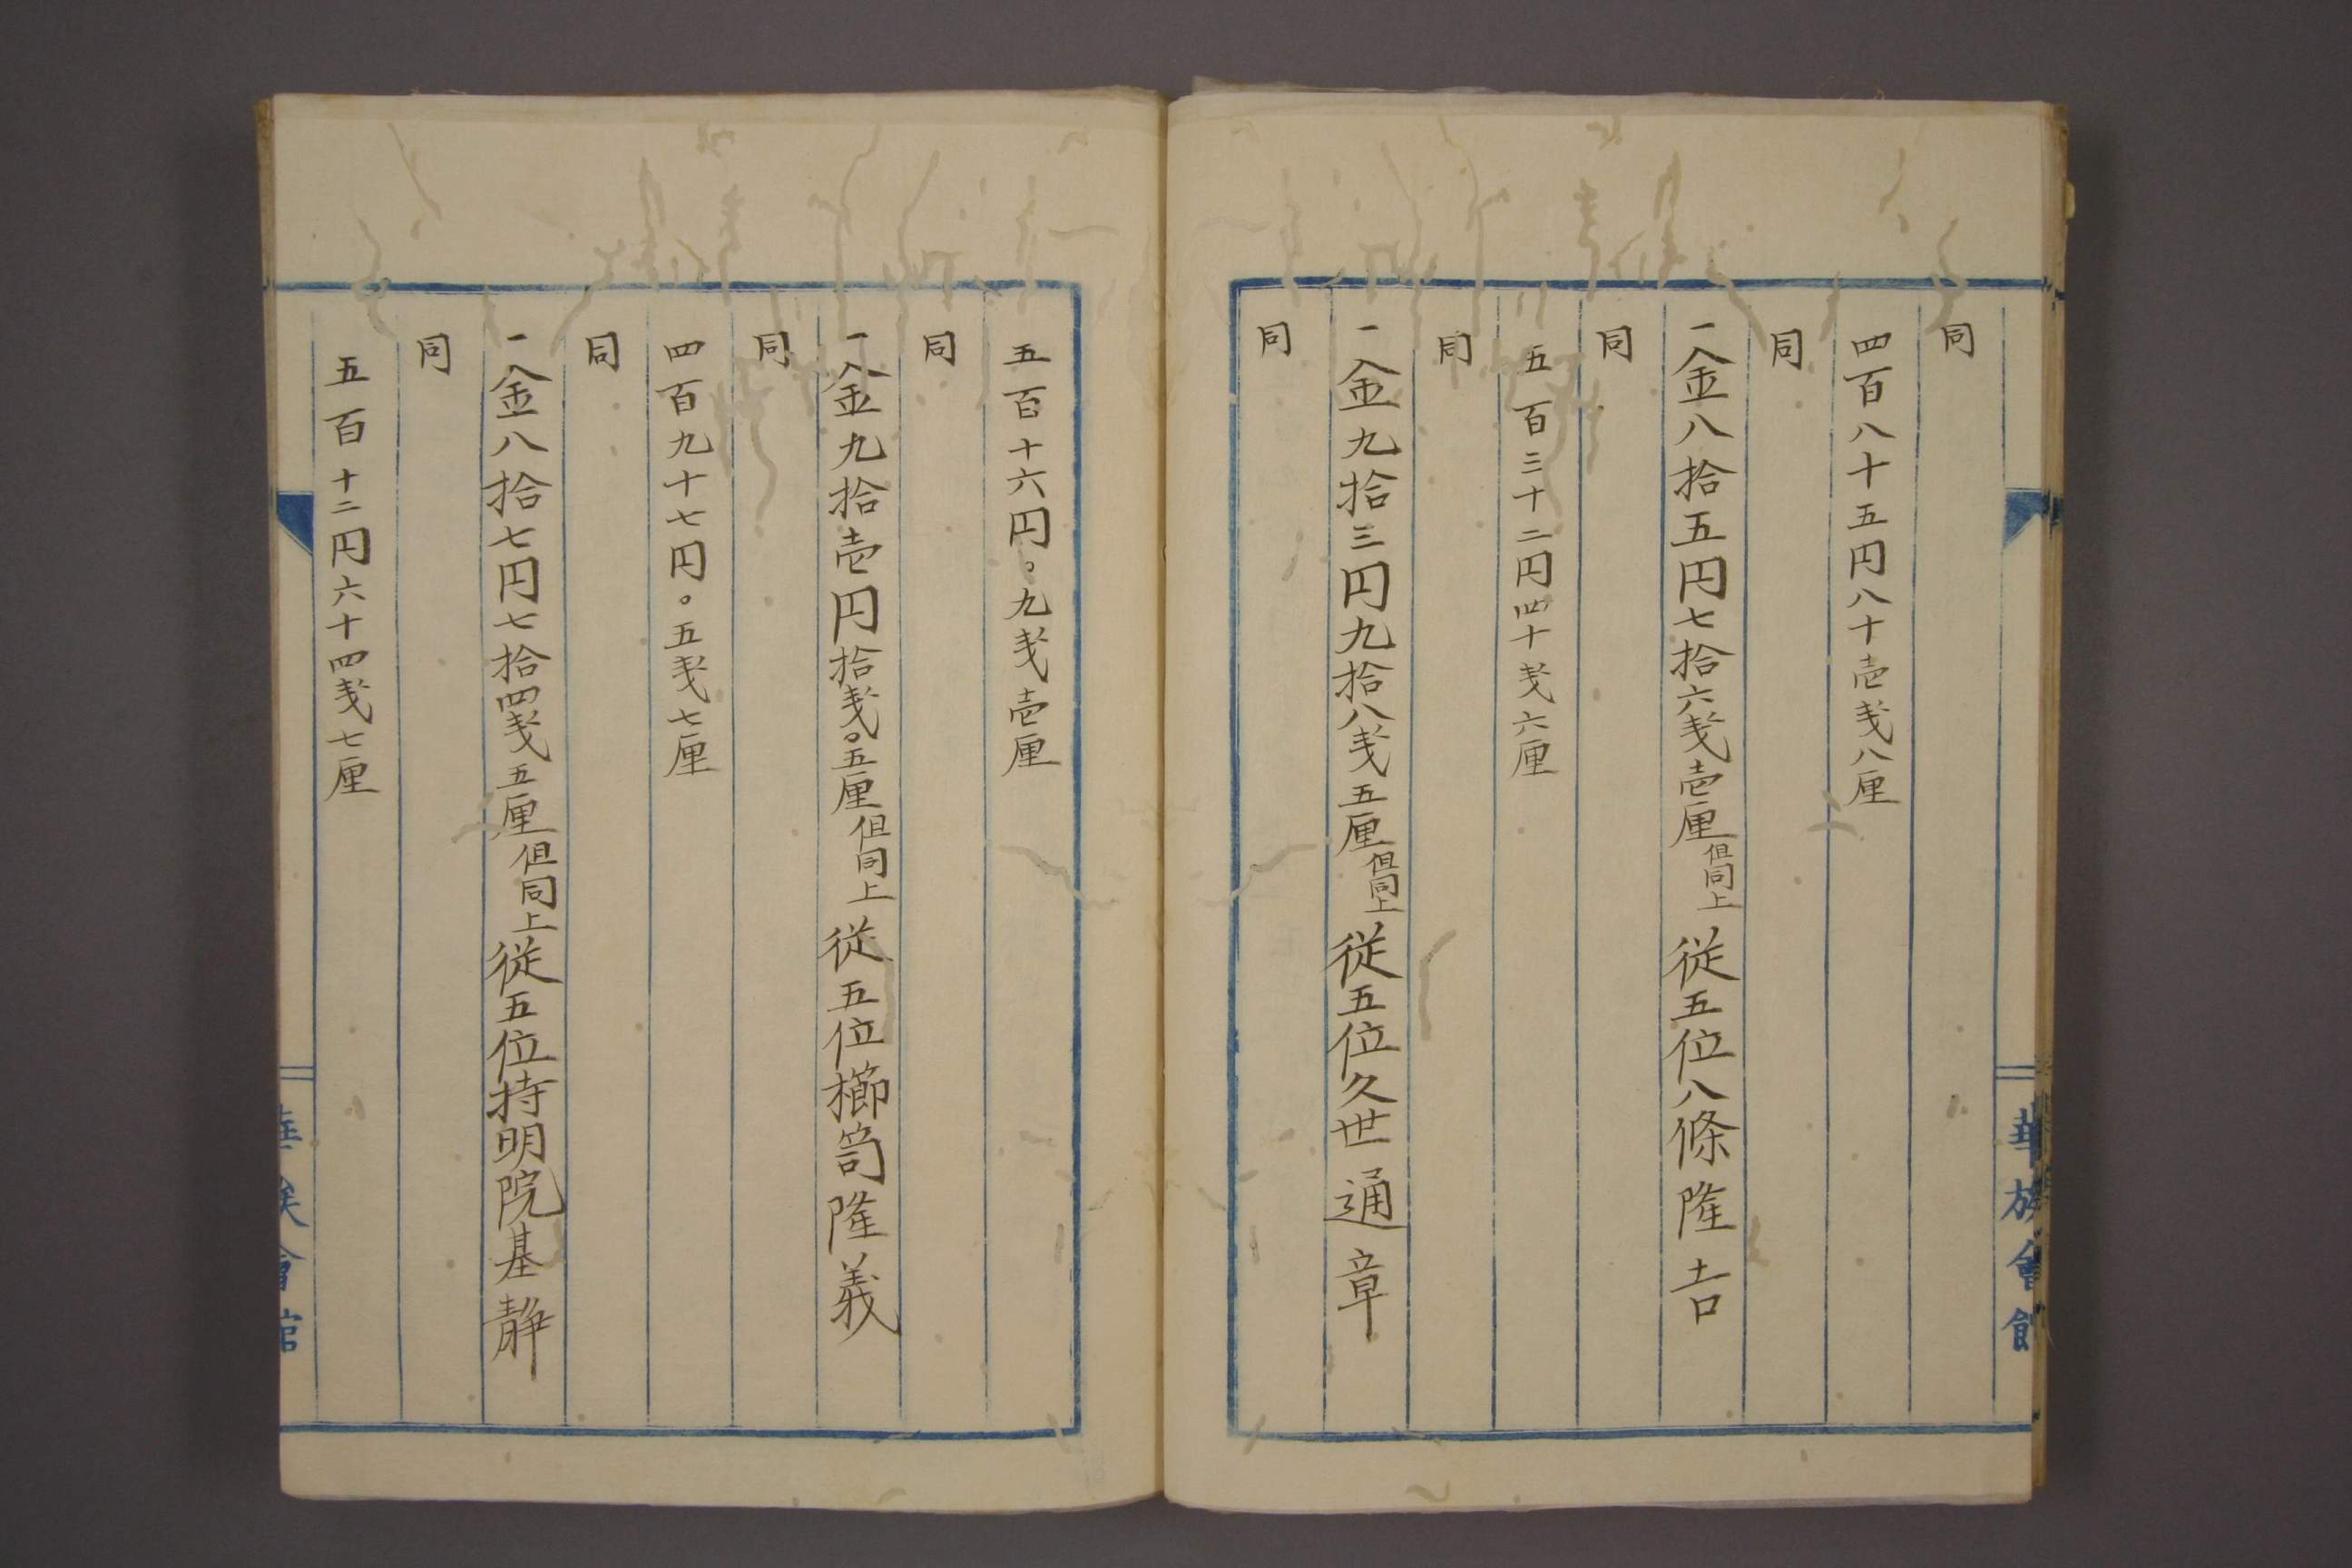 同
四百八十五円八十壱戋八厘
同
一金八拾五円七拾六戋壱厘但同上従五位八條隆吉
同
五百三十二円四十戋六厘
同
一金九拾三円九拾八戋五厘但同上従五位久世通章
同
五百十六円。九戋壱厘
同
一金九拾壱円拾戋。五厘但同上従五位櫛笥隆義
同
四百九十七円。五戋七厘
同
一金八拾七円七拾四戋五厘但同上従五位持明院基静
同
五百十二円六十四戋七厘
華族會館
華族會館